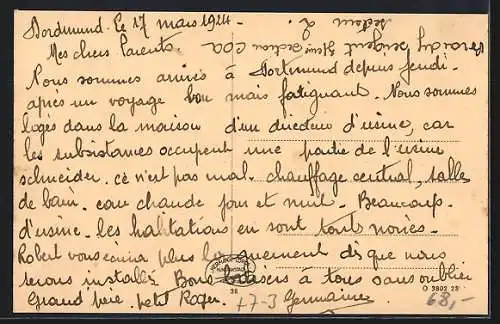 Dordmund. Le 17 mars 1924.
Mes chers Parents.
Nous sommes arrivés à Dortmund depuis jeudi.
après un voyage bon mais fatiguant. Nous sommes
logés dans la maison d'un directeur d'usine, car
les subsistances occupent une partie de l'usine
schneider. ce n'est pas mal. chauffage central, salles
de bain. eau chaude jour et nuit. Beaucoup.
d'usine. les habitations en sont touts noires.
Robert vous écrira plus longuement dès que nous
serons installés Bons baisers à tous sans oublier
Grand père. petit Roger. Germaine
17-3
68,-
38
O 3802 23
sergent section COA
secteur 2.